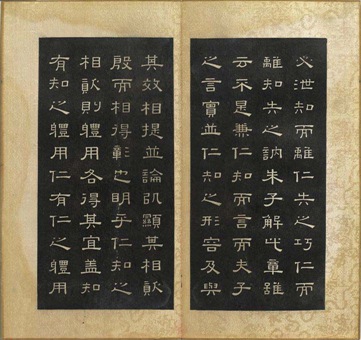 必泄知而離仁失之巧仁而
離知失之訥朱子解此章雖
云不是兼仁知而言而夫子
之言實並仁知之形容及與
其效相提並論非顯其相
殷而相得彰也明乎仁知之
相則體用各得其宜蓋知
有知之體用仁有仁之體用